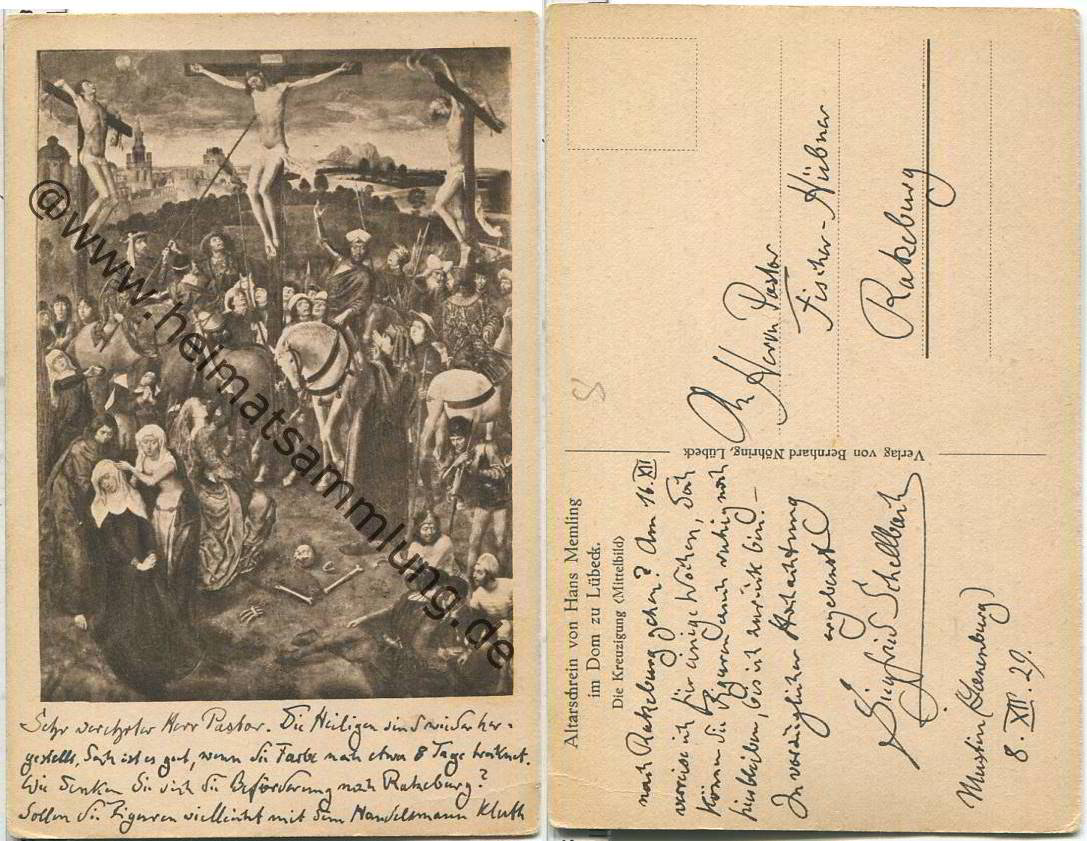 @www.heimatsammlung.de
Sehr verehrter Herr Pastor. Die Heiligen sind wiederher-
gestellt, doch ist es gut, wenn die Farbe noch etwa 8 Tage trocknet.
Wie denken Sie sich die Beförderung nach Ratzeburg?
Sollen die Figuren vielleicht mit dem Handelsmann Kluth
Altarschrein von Hans Memling
im Dom zu Lübeck.
Die Kreuzigung (Mittelbild)
nach Ratzeburg gehen? Am 16. XII
verreise ich für einige Wochen, doch
können die Figuren auch ruhig noch
hierbleiben, bis ich zurück bin. –
In vorzüglicher Hochachtung
ergebenst
Siegfried Schellbach
Mustin (Lauenburg)
8. XII. 29.
Verlag von Bernhard Nöhring, Lübeck
Herrn Pastor
Fischer-Hübner
Ratzeburg